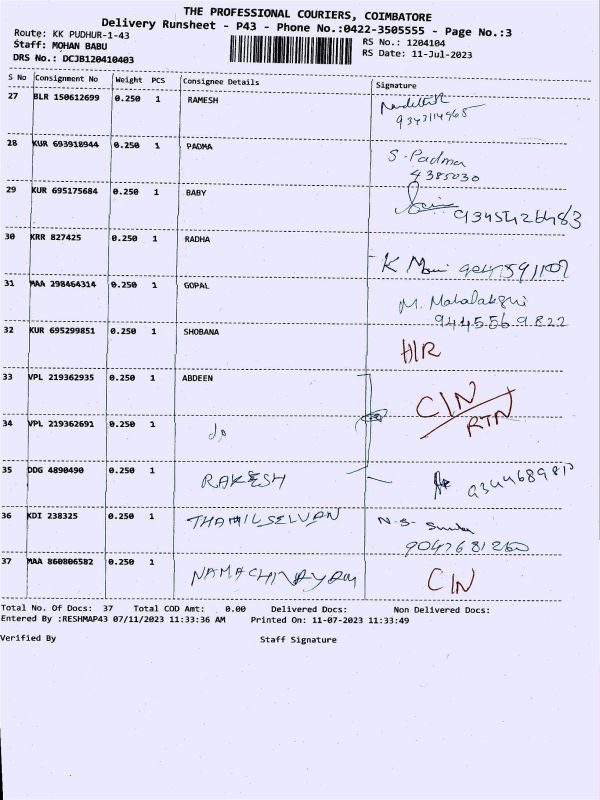 THE PROFESSIONAL COURIERS, COIMBATORE
Delivery Runsheet - P43 - Phone No.:0422-3505555 - Page No.:3
Route: KK PUDHUR-1-43
RS No.: 1204104
Staff: MOHAN BABU
RS Date: 11-Jul-2023
DRS No.: DCJB120410403
S No Consignment No Weight PCS Consignee Details Signature
27 BLR 150612699 0.250 1 RAMESH
28 KUR 693918944 0.250 1 PADMA S. Padma
4385030
29 KUR 695175684 0.250 1 BABY
30 KRR 827425 0.250 1 RADHA K Mani
31 MAA 298464314 0.250 1 GOPAL M. Mahalakshmi
9445569822
32 KUR 695299851 0.250 1 SHOBANA H/R
33 VPL 219362935 0.250 1 ABDEEN CIN
RTN
34 VPL 219362691 0.250 1 do
35 DDG 4890490 0.250 1 RAKESH
36 KDI 238325 0.250 1 THAMILSELVAN N.S.
37 MAA 860806582 0.250 1 NAMACHIVAYAM CIN
Total No. Of Docs: 37 Total COD Amt: 0.00 Delivered Docs: Non Delivered Docs:
Entered By :RESHMAP43 07/11/2023 11:33:36 AM Printed On: 11-07-2023 11:33:49
Verified By Staff Signature